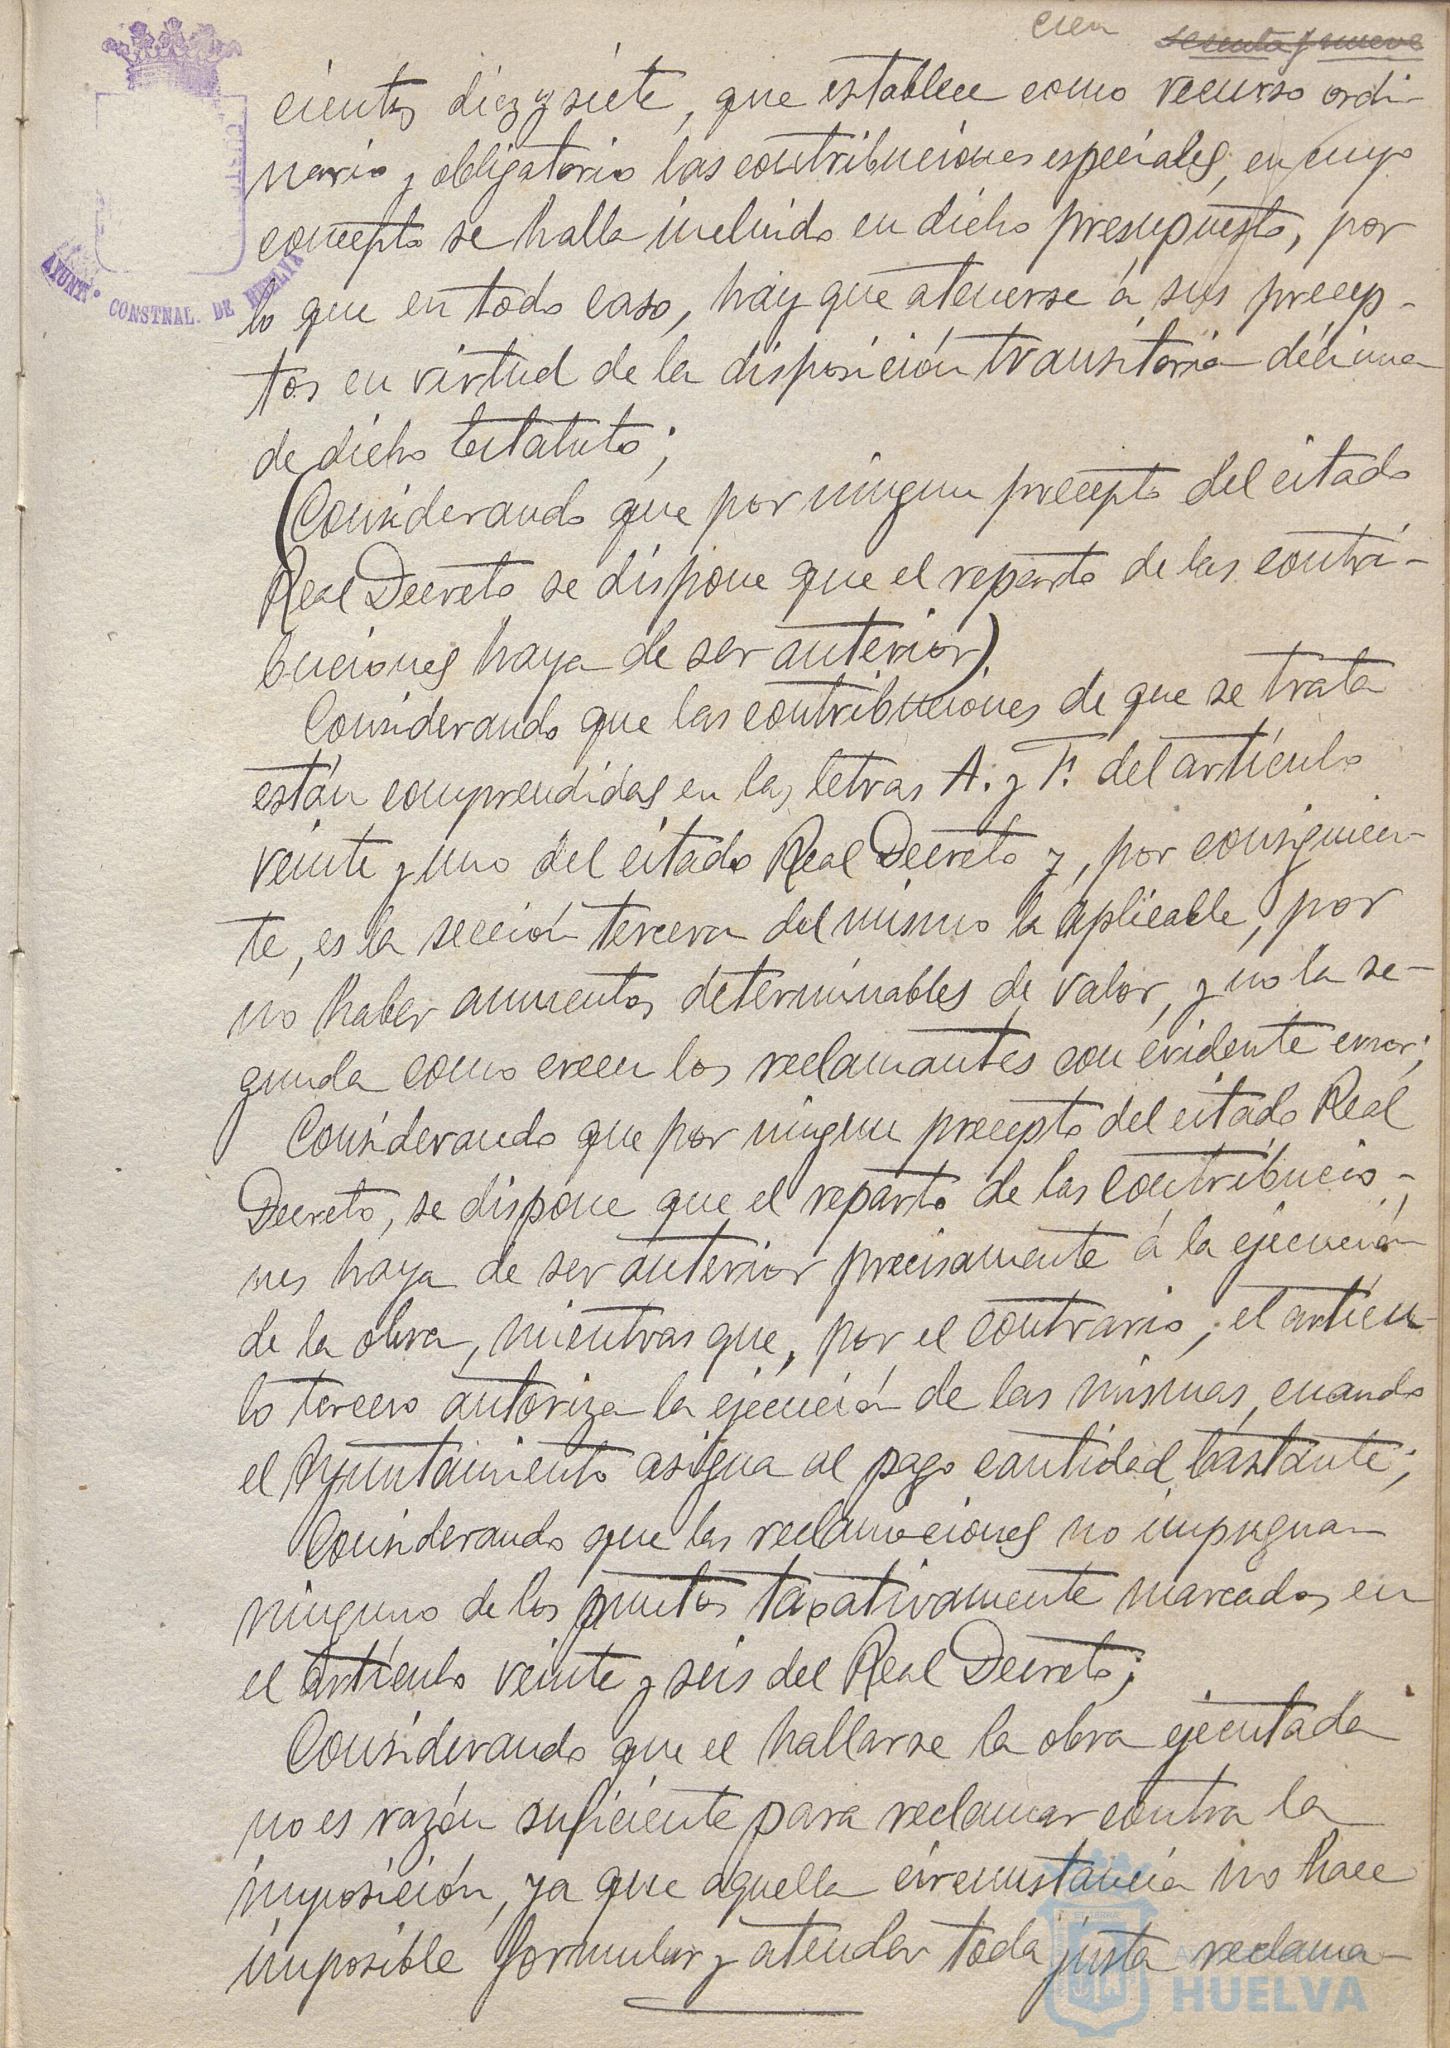 cien sesenta y nueve
cientos diez y siete, que establece como recurso ordi-
nario y obligatorio las contribuciones especiales, en cuyo
concepto se halla incluido en dicho presupuesto, por
lo que en todo caso, hay que atenerse á sus precep-
tos en virtud de la disposición transitoria décima
de dicho Estatuto;
(Considerando que por ningun precepto del citado
Real Decreto se dispone que el reparto de las contri-
buciones haya de ser anterior).
Considerando que las contribuciones de que se trata
están comprendidas en las letras A. y F. del artículo
veinte y uno del citado Real Decreto y, por consiguien-
te, es la sección tercera del mismo la aplicable, por
no haber aumentos determinables de valor, y no la se-
gunda como creen los reclamantes con evidente error;
Considerando que por ningun precepto del citado Real
Decreto, se dispone que el reparto de las contribucio-
nes haya de ser anterior precisamente á la ejecución
de la obra, mientras que, por el contrario, el artícu-
lo tercero autoriza la ejecución de las mismas, cuando
el Ayuntamiento asigna al pago cantidad bastante;
Considerando que las reclamaciones no impugnan
ninguno de los puntos taxativamente marcados en
el artículo veinte y seis del Real Decreto;
Considerando que el hallarse la obra ejecutada
no es razón suficiente para reclamar contra la
imposición, ya que aquella circunstancia no hace
imposible formular y atender toda justa reclama-
AYUNTº CONSTNAL. DE HUELVA
HUELVA